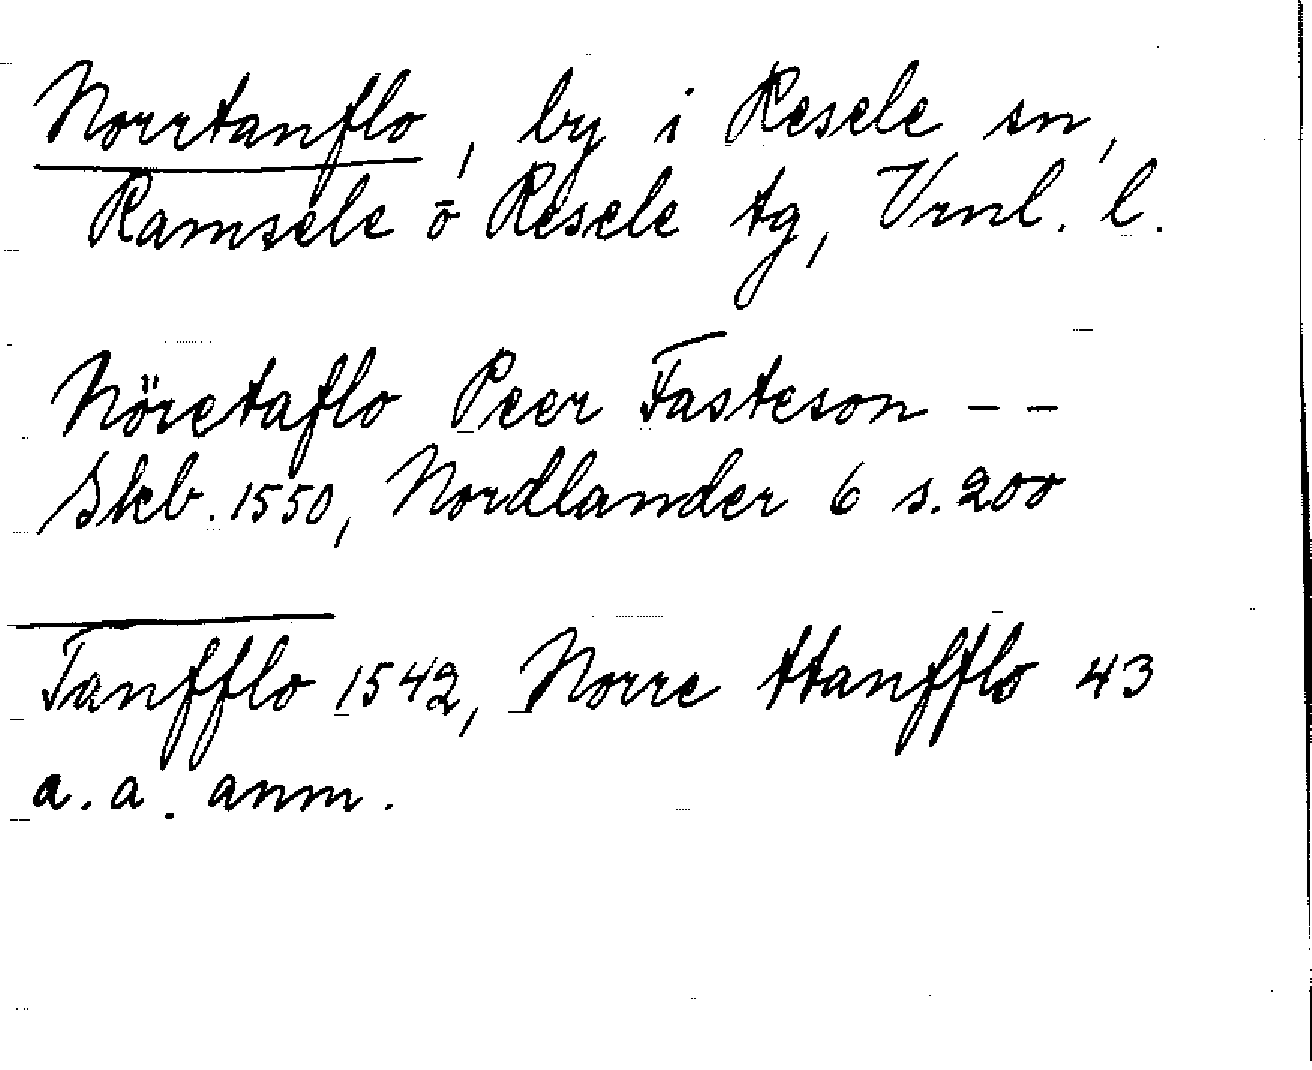 Norrtanflo, by i Resele sn,
Ramsele o Resele tg, Vrnl. l.
Nöretaflo Peer Fasteson – –
Skb. 1550, Nordlander 6 s. 200
Tanfflo 1542, Norre ttanfflo 43
a. a. anm.